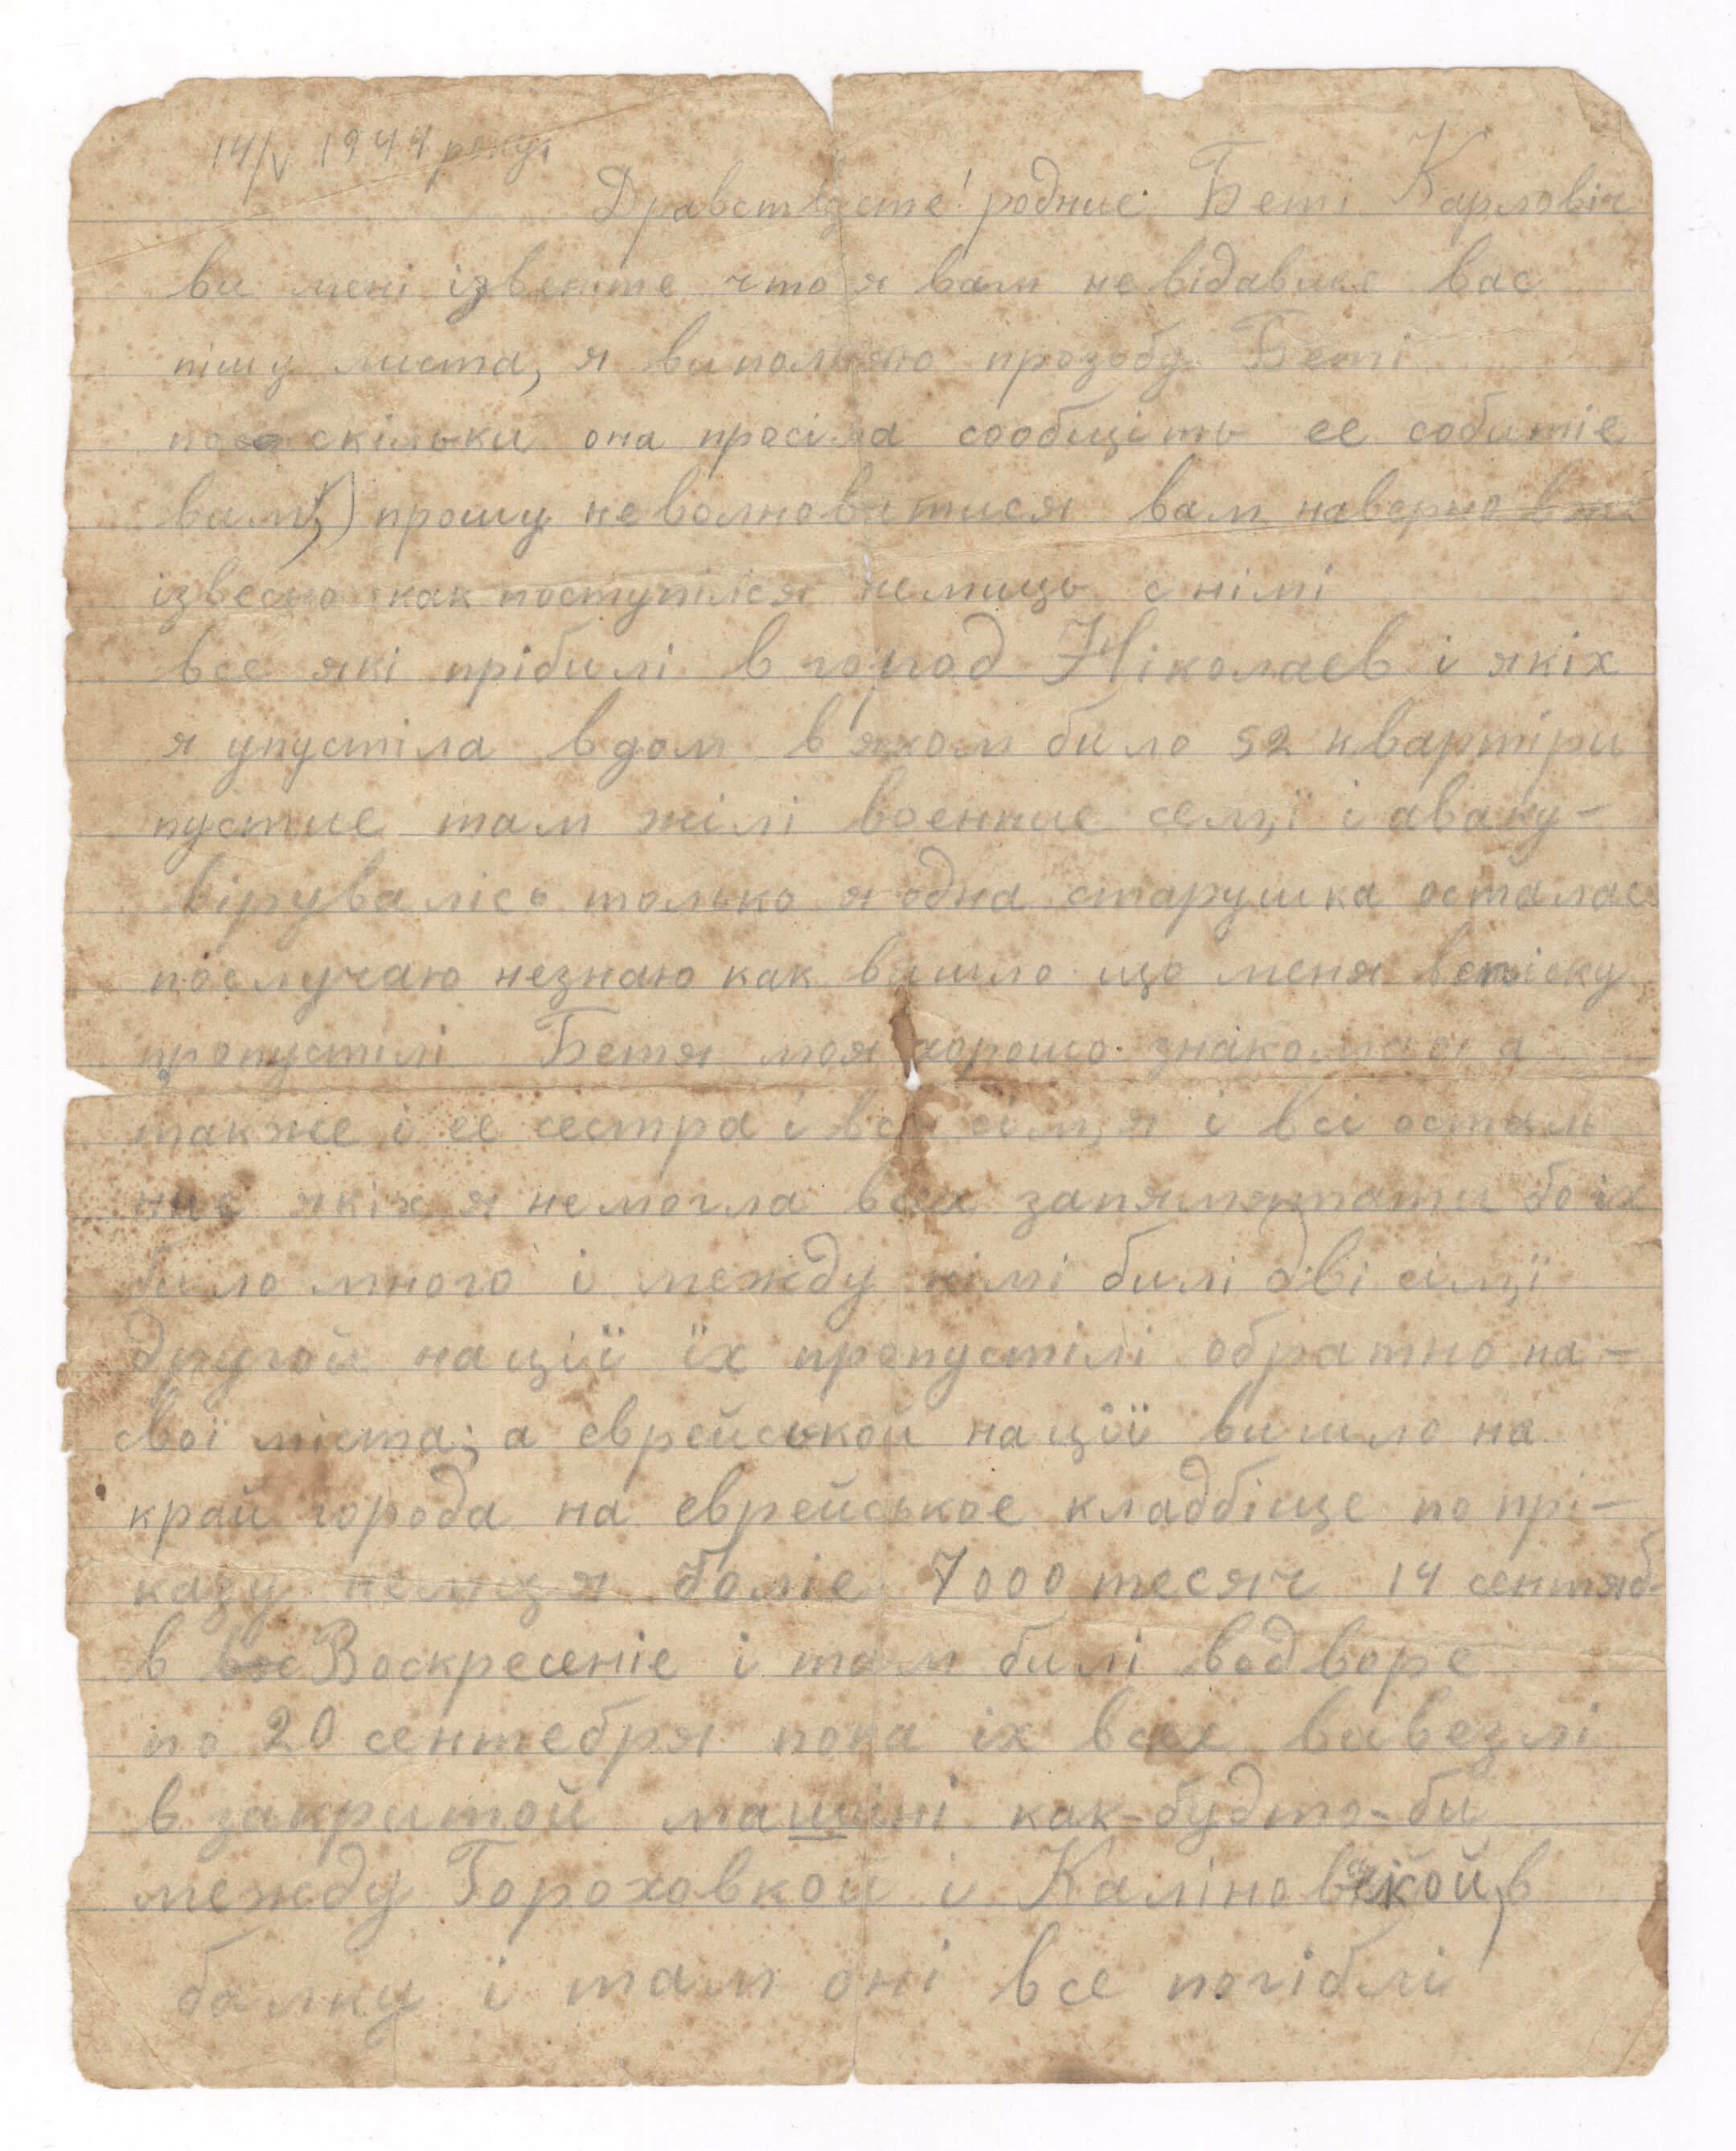 14/V 1944 року.
Дравствусте! родние Беті Карловіч
ви мені ізвеніте что я вам невідавше вас
пішу листа, я виполняю прозьбу Беті
поскільки она просіла сообщіть ее событіе
вам, прошу неволноватися вам наверно вже
ізвесно как поступілся немець с німі
все які прібилі в город Ніколаєв і якіх
я упустіла вдом в'яком било 52 квартіри
пустие там жілі военние семії і аваку-
вірувалісь только я одна старушка осталас
послучаю незнаю как вишло що меня вспіску
пропустілі Бетя моя хорошо знакомая а
также і ее сестра і вся сімʼя і всі осталь
ние якіх я немогла всех запямятати бо іх
било много і между німі билі дві сімї
другой нації їх пропустілі обратно на-
свої міста; а еврейськой нації вишло на
край города на еврейськое кладбіще по прі-
казу немця боліе 7000 тесяч 14 сентяб-
в вос Воскресеніе і там билі водворе
по 20 сентебря пока іх всех вивезлі
в закритой машині как-будто-би
между Гороховкой і Каліновкой, в
балку і там оні все погіблі